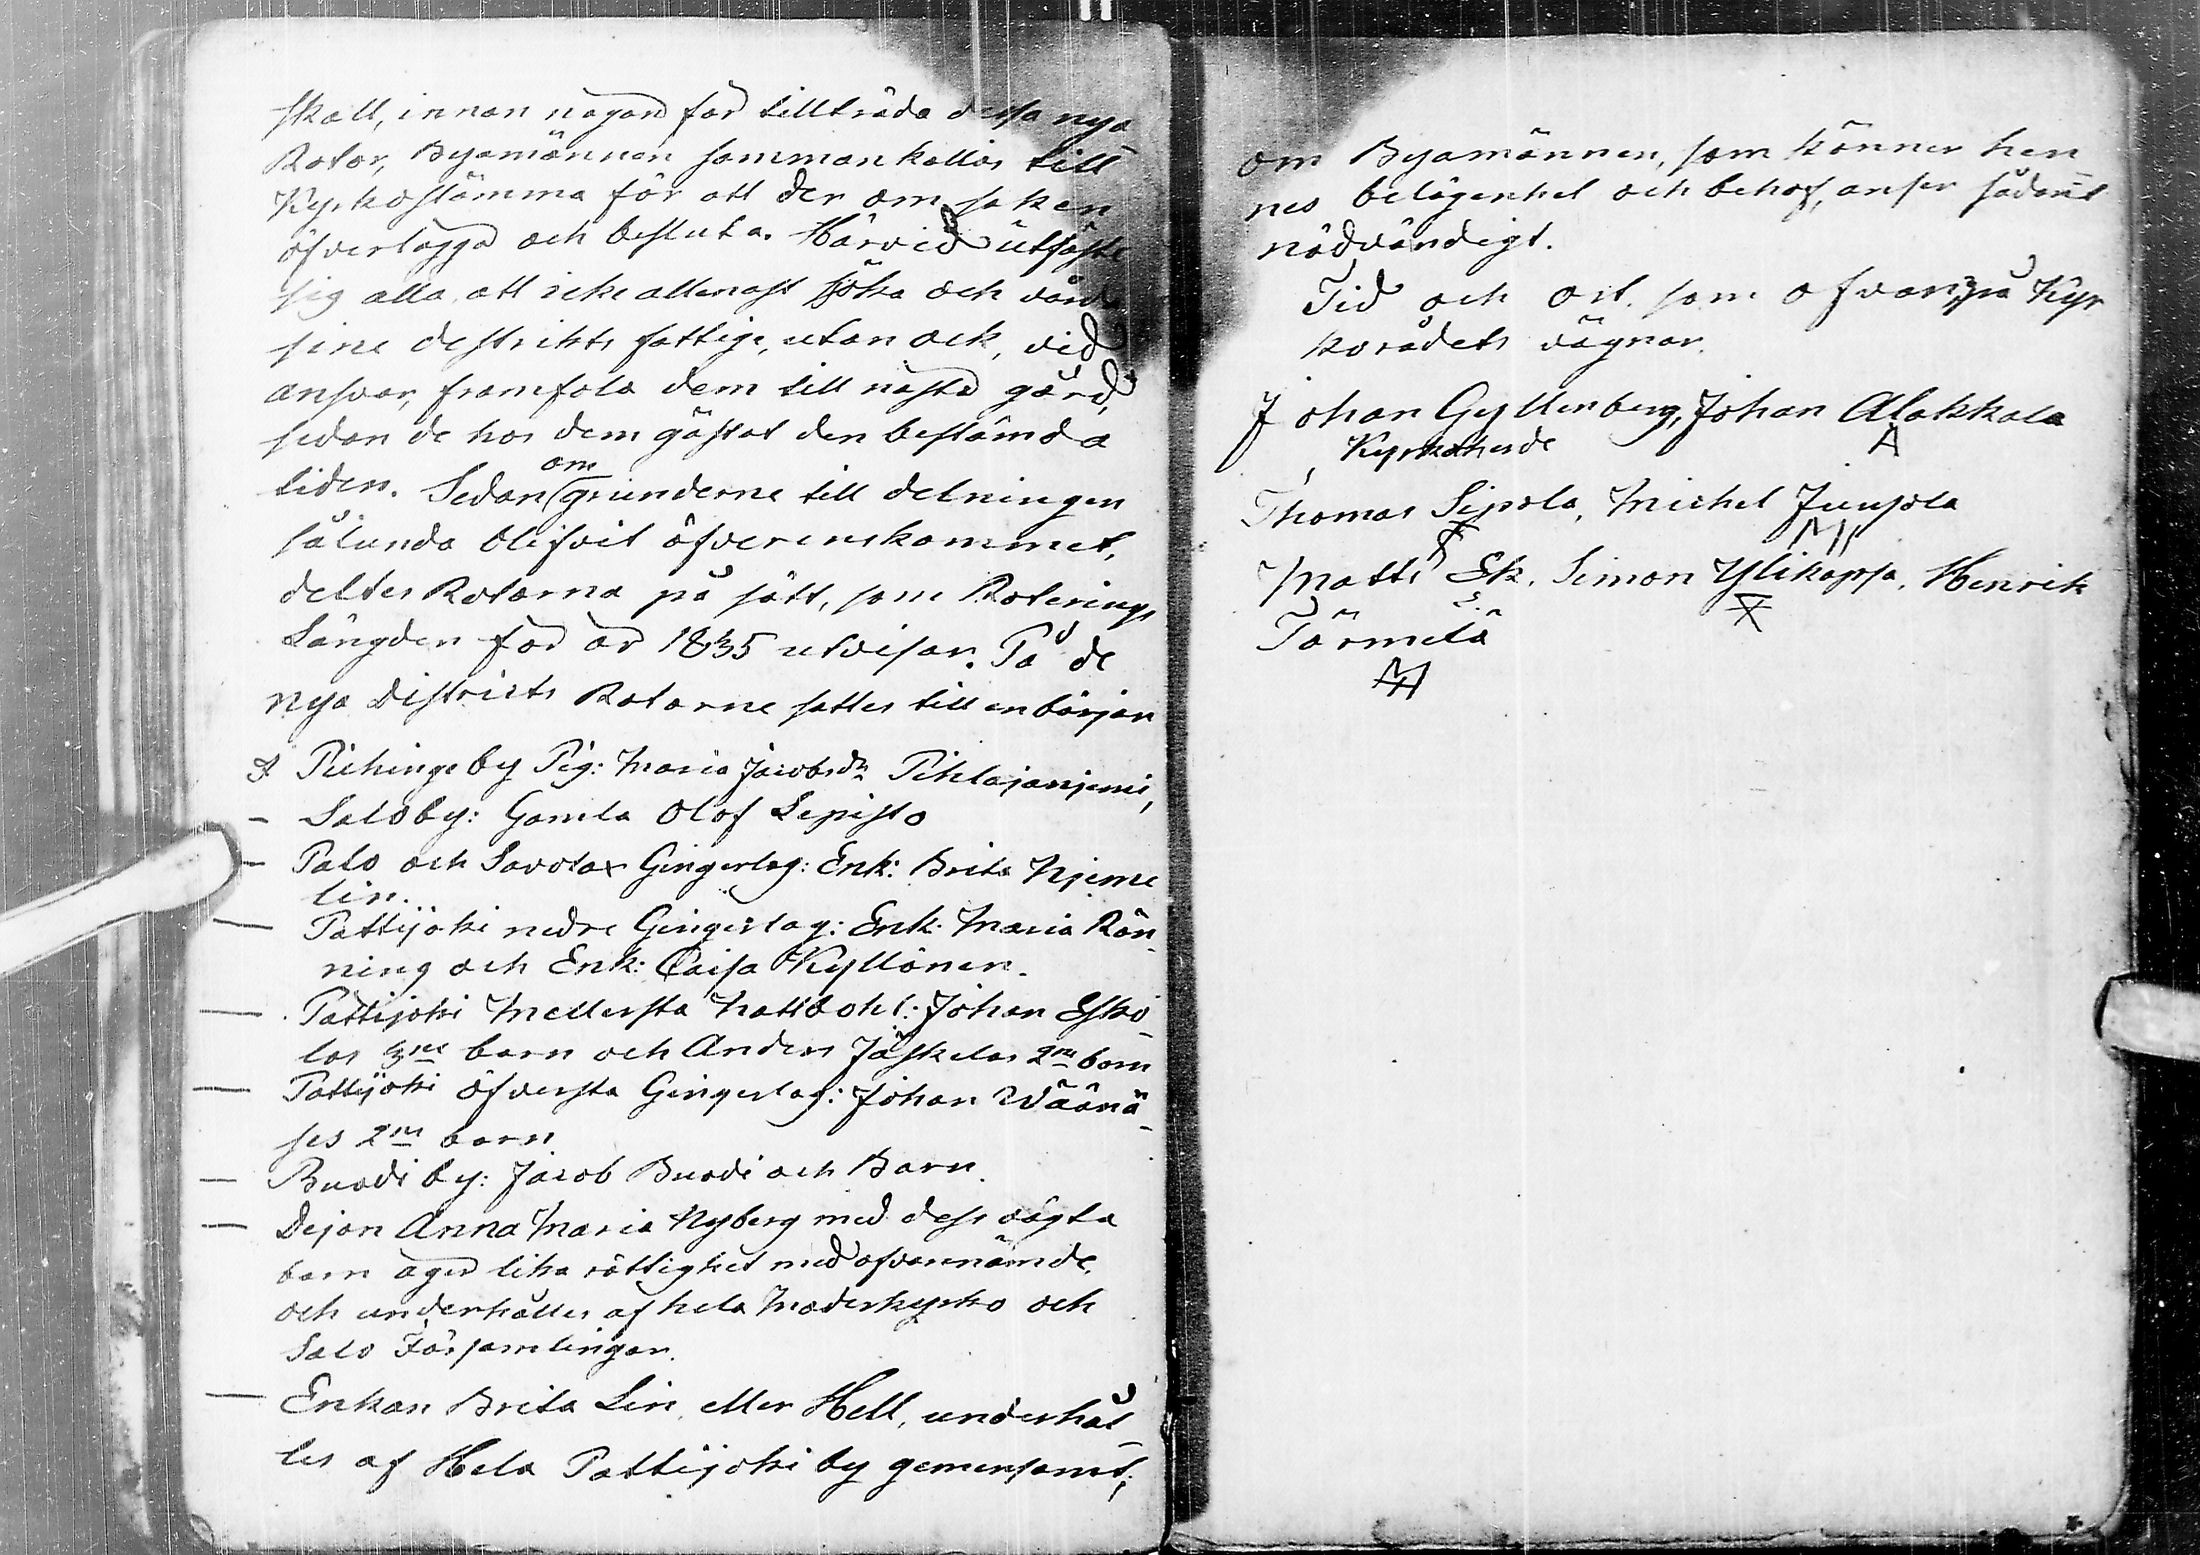 skall, innan någon får tillträda dessa nya
Rotor, Byamännen sammankallas till
Kyrkostämma för att der om saken
öfverlägga och besluta. Härvid utfäste
sig alla, att icke allenast söka och vårda
sine destrikts fattige, utan ock, vid
ansvar, framfola dem till nästa gård,
sedan de hos dem gästat den bestämda
tiden. Sedan om grunderne till delningen
sålunda blifvit öfverenskommet,
deltes Rotarna på sätt, som Roterings
Längden for år 1835 utvisar. På de
nya Districts Rotarne sattes till en början
I Piehinge by Pig: Maria Jacobsdr Pihlajaniemi,
- Salo by: Gamla Olof Lepistö
- Palo och Savolax Gingerlag: Enk: Brita Njeme
lin.
— Pattijoki nedre Gingerlag: Enk: Maria Rön-
ning och Enk: Caisa Kyllönen.
— Pattijoki Mellersta Kattbohl: Johan Esko-
las 3ne barn och Anders Jäskelas 2ne barn
— Pattijoki öfversta Gingerlag: Johan Wäänä-
ses 2ne barn
— Buodi by: Jacob Buodi och Barn.
— Dejan Anna Maria Nyberg med dess oägta
barn äger lika rättighet med ofvannämde,
och underhålles af hela Moderkyrko och
Salo Församlingar.
— Enkan Brita Lin, eller Hell, underhål-
les af Hela Pattijoki by gemensamt,
om Byamännen, som känner hen
nes belägenhet och behof, anser sådant
nödvändigt.
Tid och ort, som ofvan, på Kyr
korådets vägnar.
Johan Gyllenberg, Johan Alakkala
Kyrkoherde
Thomas Sipola, Michel Juusola
Matts Ek, Simon Ylikappa, Henrik
Törmelä